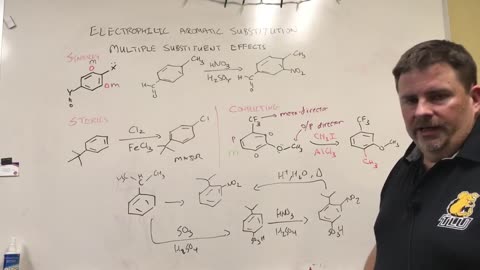 ELECTROPHILIC AROMATIC SUBSTITUTION
MULTIPLE SUBSTITUENT EFFECTS
m
m
CH3
HNO3
H2SO4
CH3
NO2
STERICS
Cl2
FeCl3
Cl
MAJOR
COMPETING
CF3
meta-director
o/p director
P
o
o
m
CH3
CH3I
AlCl3
CF3
CH3
CH3
NO2
H+, H2O, Δ
SO3
H2SO4
SO3H
HNO3
H2SO4
NO2
SO3H